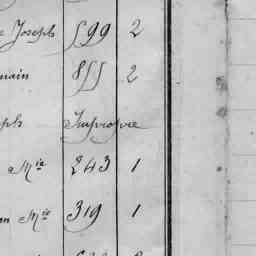 Joseph 599 2
main 855 2
ph Impropre
Mie 243 1
n Mie 319 1